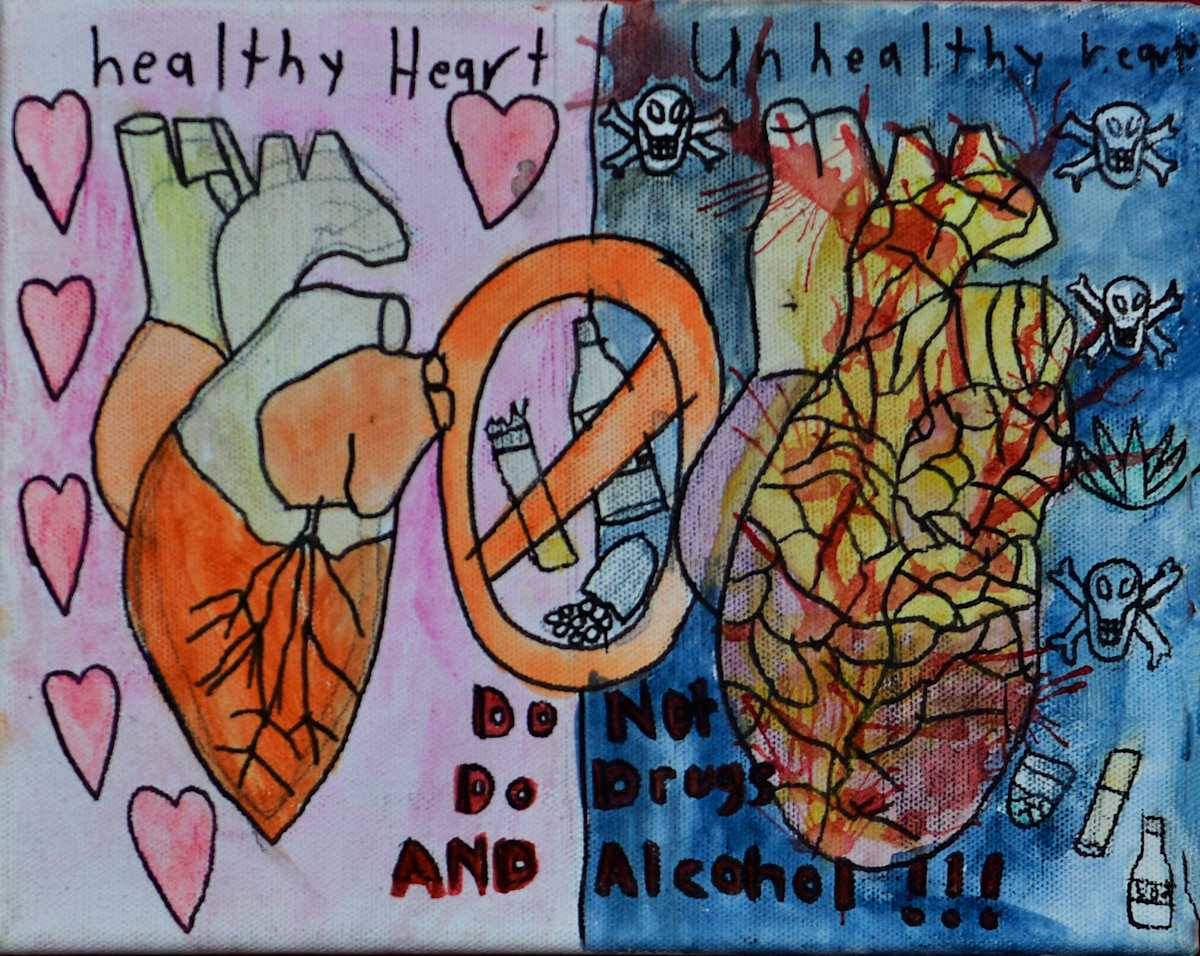 healthy Heart
Unhealthy heart
Do Not
Do Drugs
AND Alcohol !!!